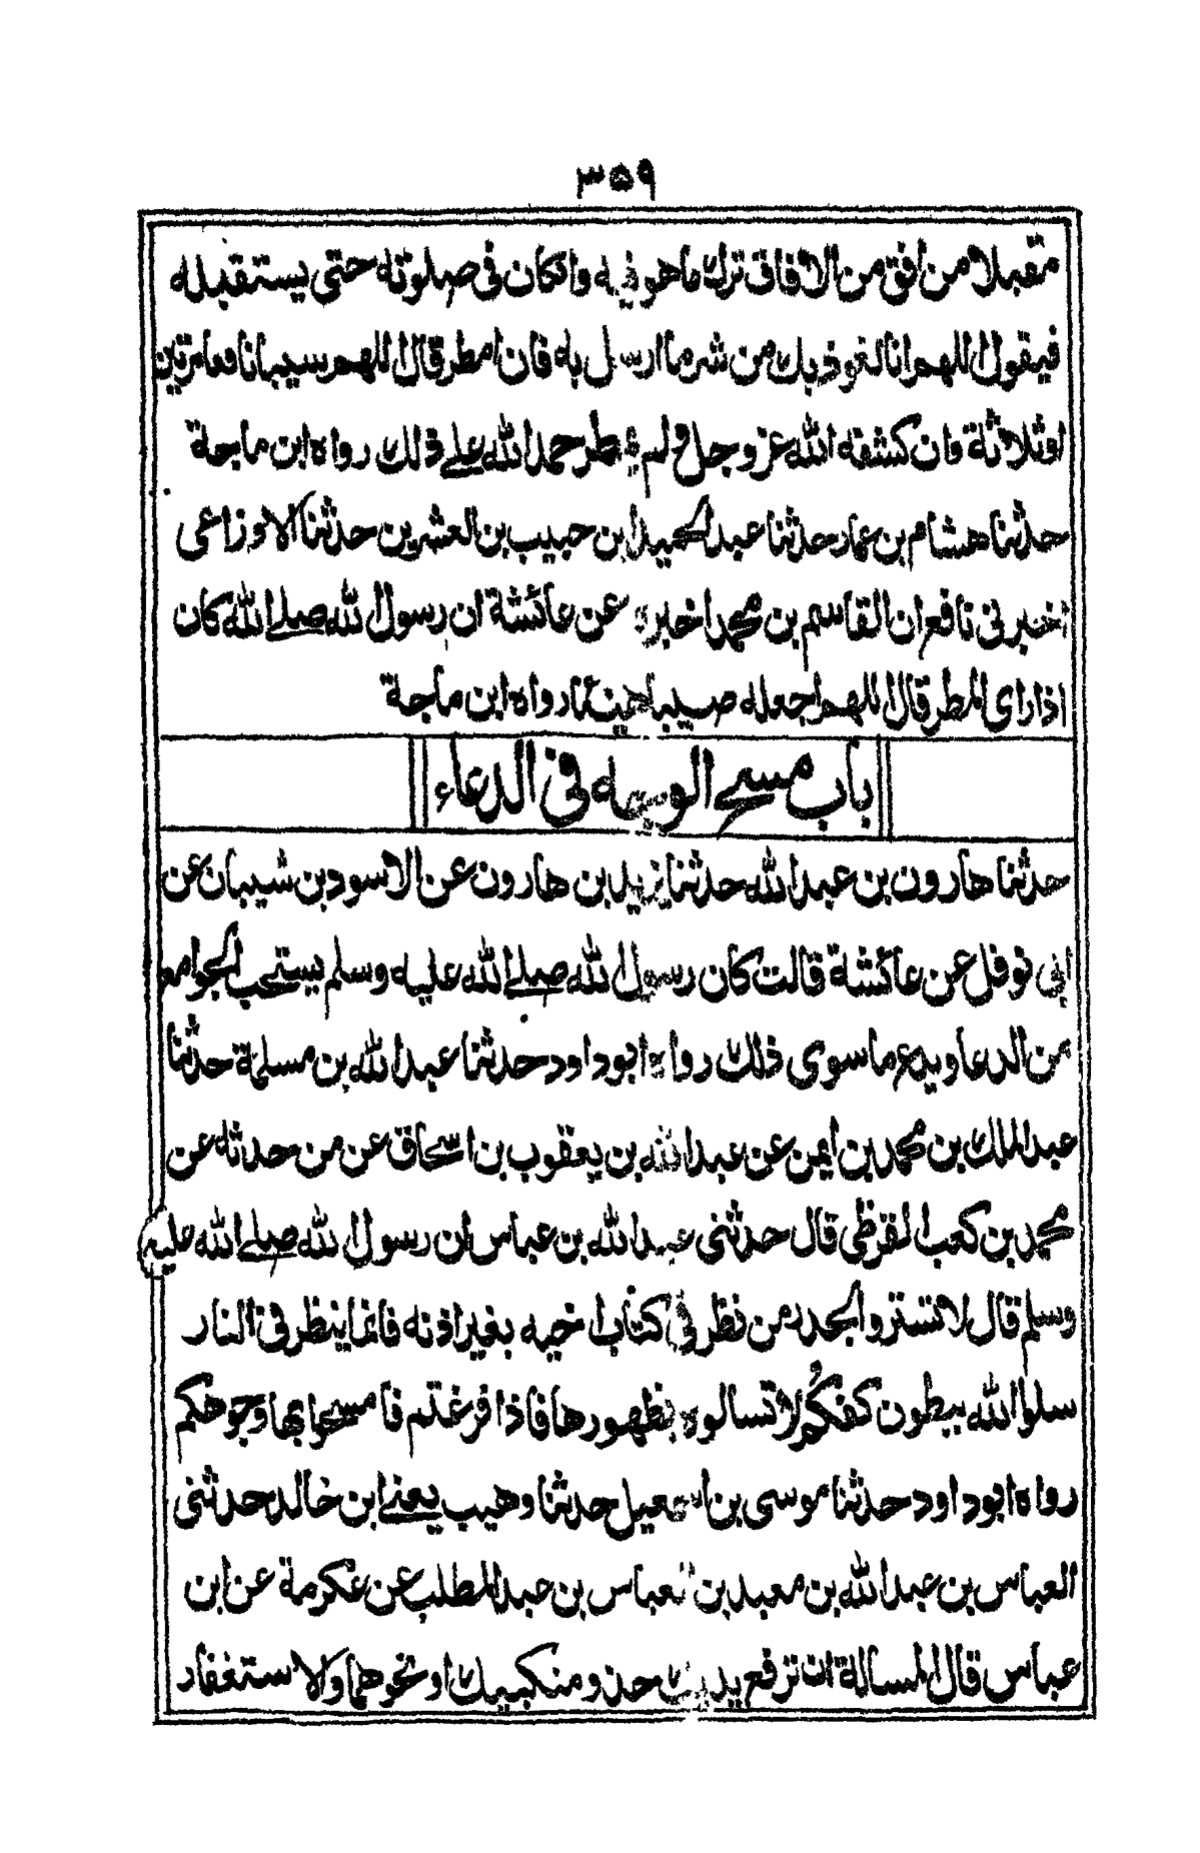 ٣٥٩
مقبلا من افق من الافاق ترك ما هو فيه وان كان فى صلوته حتى يستقبله
فيقول اللهم انا نعوذ بك من شر ما ارسل به فان امطر قال اللهم سيبا نافعا مرتين
او ثلاثة وان كشفه الله عز وجل ولم يمطر حمد الله على ذلك رواه ابن ماجة
حدثنا هشام بن عمار حدثنا عبد الحميد ابن حبيب بن العشرين حدثنا الاوزاعى
اخبرنى نافع ان القاسم بن محمد اخبره عن عائشة ان رسول الله صلے الله كان
اذا راى المطر قال اللهم اجعله صيبا هنيئا رواه ابن ماجة
باب مسح الوجه فى الدعاء
حدثنا هارون بن عبد الله حدثنا يزيد بن هارون عن الاسود بن شيبان عن
ابى نوفل عن عائشة قالت كان رسول الله صلے الله عليه وسلم يستحب الجوامع
من الدعا ويدع ما سوى ذلك رواه ابو داود حدثنا عبد الله بن مسلمة حدثنا
عبد الملك بن محمد بن ايمن عن عبد الله بن يعقوب بن اسحاق عن من حدثه عن
محمد بن كعب القرظى قال حدثنى عبد الله بن عباس ان رسول الله صلے الله عليه
وسلم قال لا تستروا الجدر من نظر فى كتاب اخيه بغير اذنه فانما ينظر فى النار
سلوا الله ببطون كفكم لا تسالوه بظهورها فاذا فرغتم فامسحوا بها وجوهكم
رواه ابو داود حدثنا موسى بن اسمعيل حدثنا وهيب يعنے ابن خالد حدثنى
العباس بن عبد الله بن معبد بن العباس بن عبد المطلب عن عكرمة عن ابن
عباس قال المسالة ان ترفع يديك حذو منكبيك او نحوهما والاستغفار